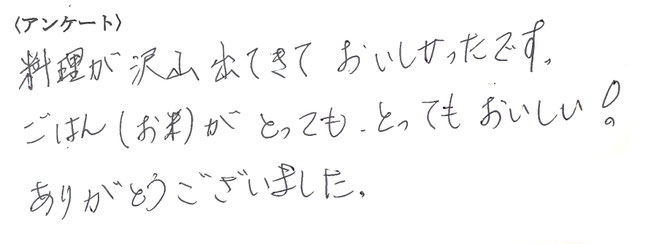 〈アンケート〉
料理が沢山出てきておいしかったです。
ごはん(お米)がとっても、とってもおいしい!
ありがとうございました。